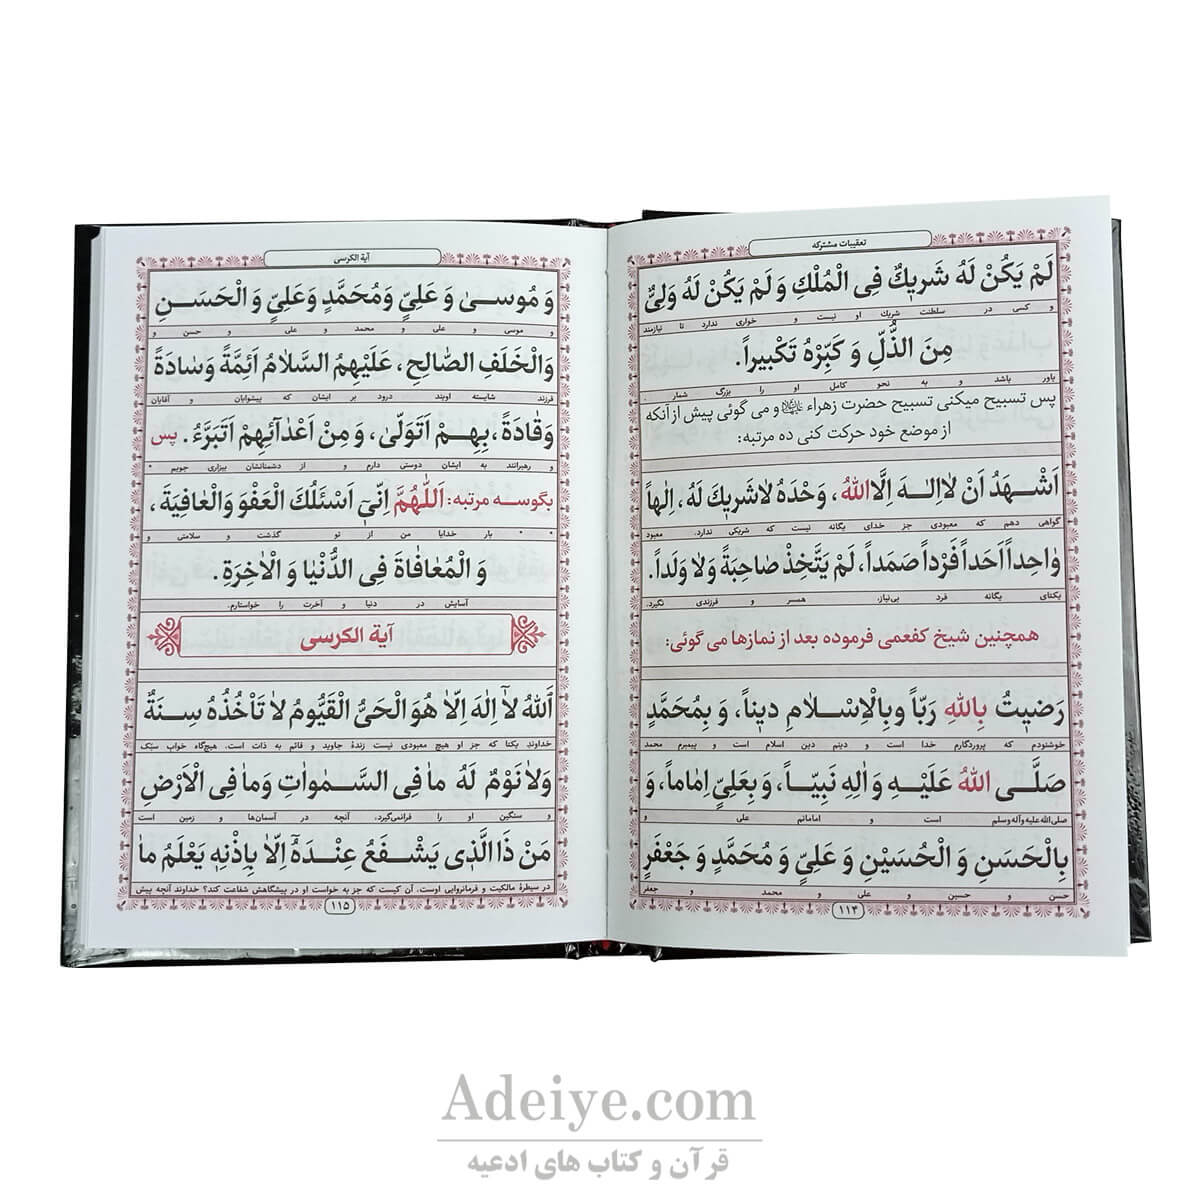 تعقیبات مشترکه
لَمْ يَكُنْ لَهُ شَريكٌ فِى الْمُلْكِ وَ لَمْ يَكُنْ لَهُ وَلِىٌّ
و کسی در سلطنت شریک او نیست و خواری ندارد تا نیازمند
مِنَ الذُّلِّ وَ كَبِّرْهُ تَكْبيراً.
یاور باشد و به نحو کامل او را بزرگ شمار.
پس تسبیح میکنی تسبیح حضرت زهراء و می گوئی پیش از آنکه
از موضع خود حرکت کنی ده مرتبه:
اَشْهَدُ اَنْ لااِلٰهَ اِلَّااللهُ، وَحْدَهُ لاشَريكَ لَهُ، اِلٰهاً
گواهی دهم که معبودی جز خدای یگانه نیست که شریکی ندارد. معبود
وٰاحِداً اَحَداً فَرْداً صَمَداً، لَمْ يَتَّخِذْ صٰاحِبَةً وَلا وَلَداً.
یکتای یگانه فرد بی‌نیاز. همسر و فرزندی نگیرد.
همچنین شیخ کفعمی فرموده بعد از نمازها می گوئی:
رَضيتُ بِاللهِ رَبّاً وبِالْاِسْلامِ ديناً، وَ بِمُحَمَّدٍ
خوشنودم که پروردگارم خدا است و دینم دین اسلام است و پیمبرم محمد
صَلَّى اللهُ عَلَيْهِ وَ اٰلِهِ نَبِيّاً، وَ بِعَلِىٍّ اِمٰاماً، وَ
صلی‌الله علیه‌وآله‌وسلم است و امامانم علی و
بِالْحَسَنِ وَ الْحُسَيْنِ وَ عَلِىٍّ وَ مُحَمَّدٍ وَ جَعْفَرٍ
حسن و حسین و علی و محمد و جعفر
۱۱۴
آیة الکرسی
وَ مُوسىٰ وَ عَلِىٍّ وَمُحَمَّدٍ وَعَلِىٍّ وَ الْحَسَنِ
و موسی و علی و محمد و علی و حسن و
وَالْخَلَفِ الصّٰالِحِ، عَلَيْهِمُ السَّلاٰمُ اَئِمَّةً وَسٰادَةً
فرزند شایسته اویند درود بر ایشان که پیشوایان و آقایان
وَقٰادَةً، بِهِمْ اَتَوَلّىٰ، وَ مِنْ اَعْدٰآئِهِمْ اَتَبَرَّءُ. پس
و رهبرانند به ایشان دوستی دارم و از دشمنانشان بیزاری جویم •
بگوسه مرتبه: اَللّٰهُمَّ اِنّىٓ اَسْئَلُكَ الْعَفْوَ وَالْعٰافِيَةَ،
• • بار خدایا من از تو گذشت و سلامتی و
وَ الْمُعٰافٰاةَ فِى الدُّنْيٰا وَ الْاٰخِرَةِ.
آسایش در دنیا و آخرت را خواستارم.
آیة الکرسی
اَللهُ لآٰ اِلٰهَ اِلّاٰ هُوَ الْحَىُّ الْقَيُّومُ لاٰ تَأْخُذُهُ سِنَةٌ
خداوند یکتا که جز او هیچ معبودی نیست زندهٔ جاوید و قائم به ذات است. هیچ‌گاه خواب سبک
وَلاٰ نَوْمٌ لَهُ مٰا فِى السَّمٰوٰاتِ وَمٰا فِى الْاَرْضِ
و سنگین او را فرانمی‌گیرد، آنچه در آسمان‌ها و زمین است
مَنْ ذَا الَّذى يَشْفَعُ عِنْدَهُٓ اِلّاٰ بِاِذْنِهِ يَعْلَمُ مٰا
در سیطرهٔ مالکیت و فرمانروایی اوست. آن کیست که جز به خواست او در پیشگاهش شفاعت کند؟ خداوند آنچه پیش
۱۱۵
Adeiye.com
قرآن و کتاب های ادعیه